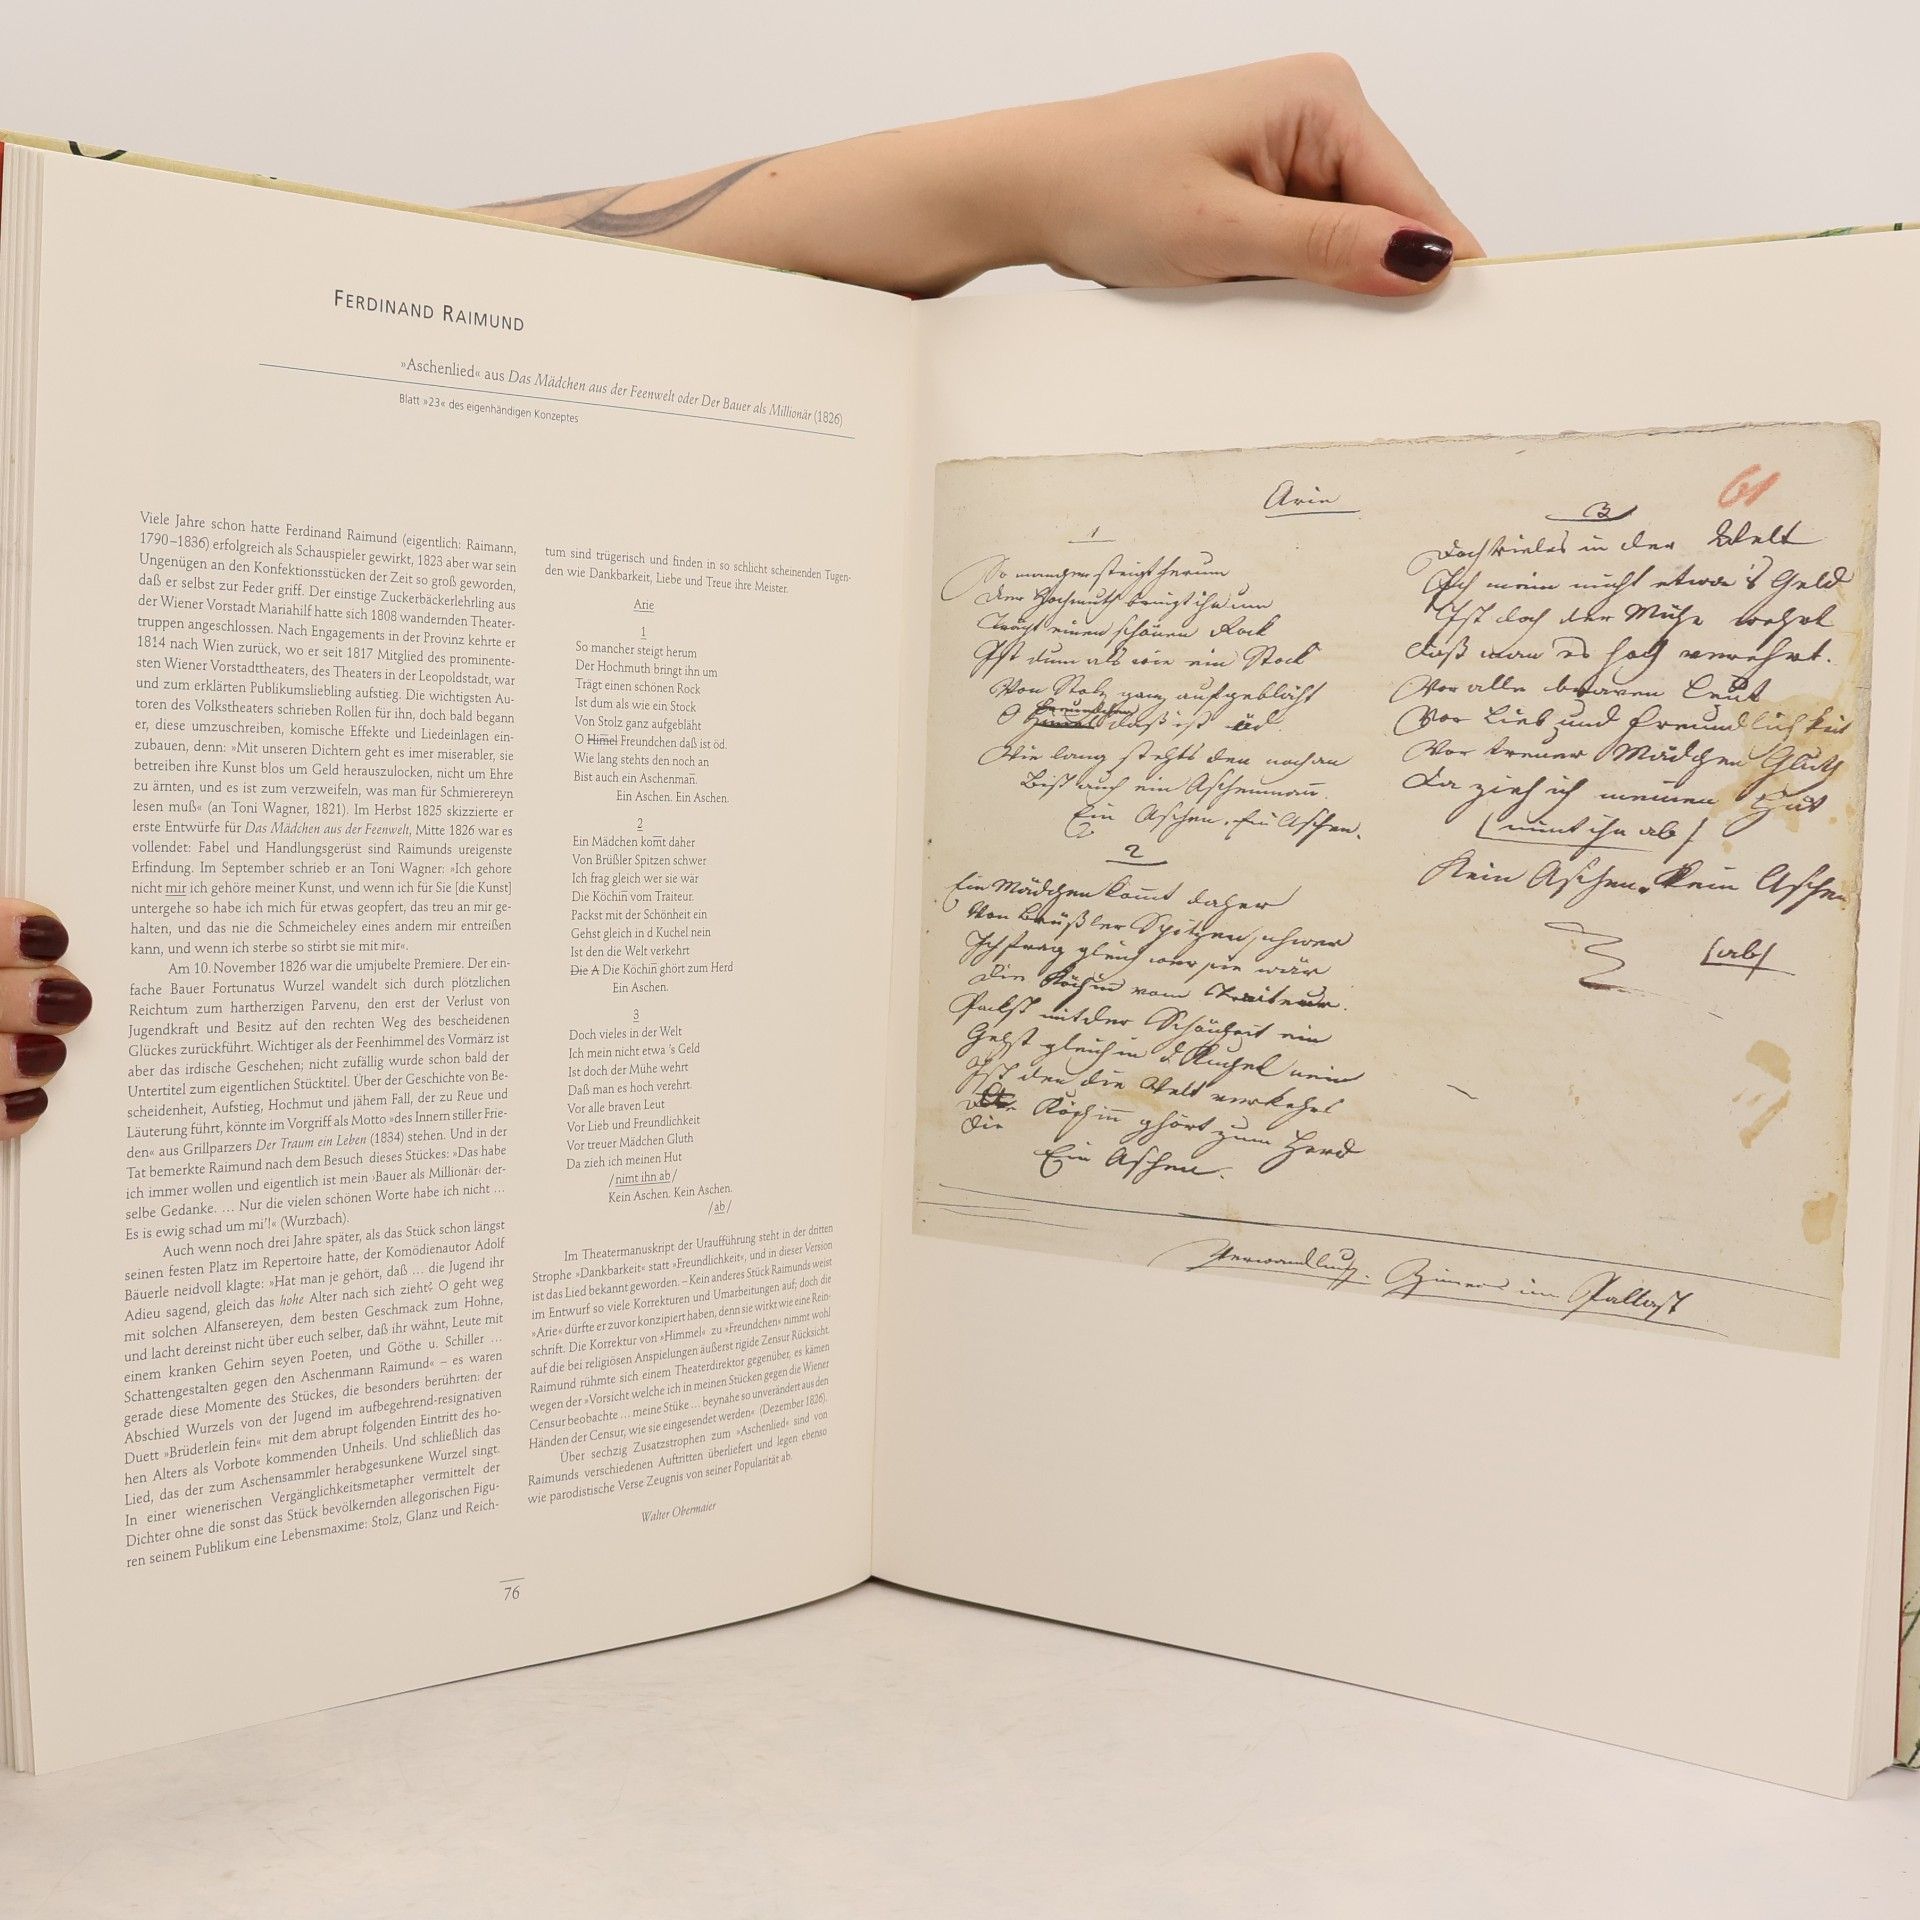 FERDINAND RAIMUND
»Aschenlied« aus Das Mädchen aus der Feenwelt oder Der Bauer als Millionär (1826)
Blatt »23« des eigenhändigen Konzeptes
Viele Jahre schon hatte Ferdinand Raimund (eigentlich: Raimann,
1790–1836) erfolgreich als Schauspieler gewirkt, 1823 aber war sein
Ungenügen an den Konfektionsstücken der Zeit so groß geworden,
daß er selbst zur Feder griff. Der einstige Zuckerbäckerlehrling aus
der Wiener Vorstadt Mariahilf hatte sich 1808 wandernden Theater-
truppen angeschlossen. Nach Engagements in der Provinz kehrte er
1814 nach Wien zurück, wo er seit 1817 Mitglied des prominente-
sten Wiener Vorstadttheaters, des Theaters in der Leopoldstadt, war
und zum erklärten Publikumsliebling aufstieg. Die wichtigsten Au-
toren des Volkstheaters schrieben Rollen für ihn, doch bald begann
er, diese umzuschreiben, komische Effekte und Liedeinlagen ein-
zubauen, denn: »Mit unseren Dichtern geht es imer miserabler, sie
betreiben ihre Kunst blos um Geld herauszulocken, nicht um Ehre
zu ärnten, und es ist zum verzweifeln, was man für Schmierereyn
lesen muß« (an Toni Wagner, 1821). Im Herbst 1825 skizzierte er
erste Entwürfe für Das Mädchen aus der Feenwelt, Mitte 1826 war es
vollendet: Fabel und Handlungsgerüst sind Raimunds ureigenste
Erfindung. Im September schrieb er an Toni Wagner: »Ich gehore
nicht mir ich gehöre meiner Kunst, und wenn ich für Sie [die Kunst]
untergehe so habe ich mich für etwas geopfert, das treu an mir ge-
halten, und das nie die Schmeicheley eines andern mir entreißen
kann, und wenn ich sterbe so stirbt sie mit mir«.
Am 10. November 1826 war die umjubelte Premiere. Der ein-
fache Bauer Fortunatus Wurzel wandelt sich durch plötzlichen
Reichtum zum hartherzigen Parvenu, den erst der Verlust von
Jugendkraft und Besitz auf den rechten Weg des bescheidenen
Glückes zurückführt. Wichtiger als der Feenhimmel des Vormärz ist
aber das irdische Geschehen; nicht zufällig wurde schon bald der
Untertitel zum eigentlichen Stücktitel. Über der Geschichte von Be-
scheidenheit, Aufstieg, Hochmut und jähem Fall, der zu Reue und
Läuterung führt, könnte im Vorgriff als Motto »des Innern stiller Frie-
den« aus Grillparzers Der Traum ein Leben (1834) stehen. Und in der
Tat bemerkte Raimund nach dem Besuch dieses Stückes: »Das habe
ich immer wollen und eigentlich ist mein ›Bauer als Millionär‹ der-
selbe Gedanke. ... Nur die vielen schönen Worte habe ich nicht ...
Es is ewig schad um mi'!« (Wurzbach).
Auch wenn noch drei Jahre später, als das Stück schon längst
seinen festen Platz im Repertoire hatte, der Komödienautor Adolf
Bäuerle neidvoll klagte: »Hat man je gehört, daß ... die Jugend ihr
Adieu sagend, gleich das hohe Alter nach sich zieht? O geht weg
mit solchen Alfansereyen, dem besten Geschmack zum Hohne,
und lacht dereinst nicht über euch selber, daß ihr wähnt, Leute mit
einem kranken Gehirn seyen Poeten, und Göthe u. Schiller ...
Schattengestalten gegen den Aschenmann Raimund« – es waren
gerade diese Momente des Stückes, die besonders berührten: der
Abschied Wurzels von der Jugend im aufbegehrend-resignativen
Duett »Brüderlein fein« mit dem abrupt folgenden Eintritt des ho-
hen Alters als Vorbote kommenden Unheils. Und schließlich das
Lied, das der zum Aschensammler herabgesunkene Wurzel singt.
In einer wienerischen Vergänglichkeitsmetapher vermittelt der
Dichter ohne die sonst das Stück bevölkernden allegorischen Figu-
ren seinem Publikum eine Lebensmaxime: Stolz, Glanz und Reich-
tum sind trügerisch und finden in so schlicht scheinenden Tugen-
den wie Dankbarkeit, Liebe und Treue ihre Meister.
Arie
1
So mancher steigt herum
Der Hochmuth bringt ihn um
Trägt einen schönen Rock
Ist dum als wie ein Stock
Von Stolz ganz aufgebläht
O Himel Freundchen daß ist öd.
Wie lang stehts den noch an
Bist auch ein Aschenmañ.
Ein Aschen. Ein Aschen.
2
Ein Mädchen kom̅t daher
Von Brüßler Spitzen schwer
Ich frag gleich wer sie wär
Die Köchin̅ vom Traiteur.
Packst mit der Schönheit ein
Gehst gleich in d Kuchel nein
Ist den die Welt verkehrt
Die A Die Köchin̅ ghört zum Herd
Ein Aschen.
3
Doch vieles in der Welt
Ich mein nicht etwa 's Geld
Ist doch der Mühe wehrt
Daß man es hoch verehrt.
Vor alle braven Leut
Vor Lieb und Freundlichkeit
Vor treuer Mädchen Gluth
Da zieh ich meinen Hut
/nimt ihn ab/
Kein Aschen. Kein Aschen.
/ab/
Im Theatermanuskript der Uraufführung steht in der dritten
Strophe »Dankbarkeit« statt »Freundlichkeit«, und in dieser Version
ist das Lied bekannt geworden. – Kein anderes Stück Raimunds weist
im Entwurf so viele Korrekturen und Umarbeitungen auf; doch die
»Arie« dürfte er zuvor konzipiert haben, denn sie wirkt wie eine Rein-
schrift. Die Korrektur von »Himmel« zu »Freundchen« nimmt wohl
auf die bei religiösen Anspielungen äußerst rigide Zensur Rücksicht.
Raimund rühmte sich einem Theaterdirektor gegenüber, es kämen
wegen der »Vorsicht welche ich in meinen Stücken gegen die Wiener
Censur beobachte ... meine Stüke ... beynahe so unverändert aus den
Händen der Censur, wie sie eingesendet werden« (Dezember 1826).
Über sechzig Zusatzstrophen zum »Aschenlied« sind von
Raimunds verschiedenen Auftritten überliefert und legen ebenso
wie parodistische Verse Zeugnis von seiner Popularität ab.
Walter Obermaier
76
61
Arie
1
So mancher steigt herum
Der Hochmuth bringt ihn um
Trägt einen schönen Rock
Ist dum als wie ein Stock
Von Stolz ganz aufgebläht
Freundchen
O Himel daß ist öd.
Wie lang stehts den noch an
Bist auch ein Aschenmañ.
Ein Aschen. Ein Aschen.
2
Ein Mädchen kom̅t daher
Von Brüßler Spitzen schwer
Ich frag gleich wer sie wär
Die Köchin̅ vom Traiteur.
Packst mit der Schönheit ein
Gehst gleich in d Kuchel nein
Ist den die Welt verkehrt
Die A Köchin̅ ghört zum Herd
Die
Ein Aschen.
3
Doch vieles in der Welt
Ich mein nicht etwa 's Geld
Ist doch der Mühe wehrt
Daß man es hoch verehrt.
Vor alle braven Leut
Vor Lieb und Freundlichkeit
Vor treuer Mädchen Gluth
Da zieh ich meinen Hut
/nimt ihn ab/
Kein Aschen. Kein Aschen
/ab/
Verwandlung. Zimer im Pallast